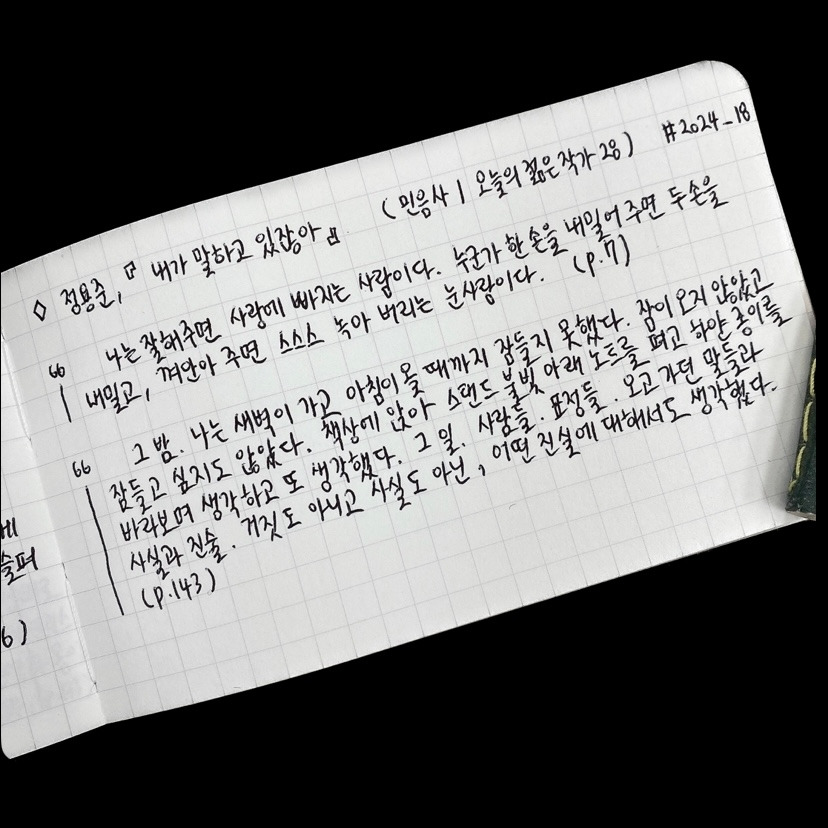 #2024_18
◇ 정용준, 『내가 말하고 있잖아』 (민음사 | 오늘의 젊은 작가 28)
“ 나는 잘해주면 사랑에 빠지는 사람이다. 누군가 한 손을 내밀어 주면 두 손을
내밀고, 껴안아 주면 스스스 녹아 버리는 눈사람이다. (p.7)
“ 그 밤. 나는 새벽이 가고 아침이 올 때까지 잠들지 못했다. 잠이 오지 않았고
잠들고 싶지도 않았다. 책상에 앉아 스탠드 불빛 아래 노트를 펴고 하얀 종이를
바라보며 생각하고 또 생각했다. 그 일. 사람들. 표정들. 오고 가던 말들과
사실과 진술. 거짓도 아니고 사실도 아닌, 어떤 진실에 대해서도 생각했다.
(p.143)
에
슬퍼
6)